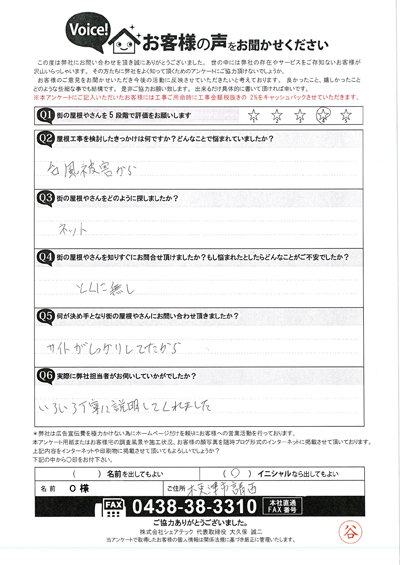 Voice!
お客様の声をお聞かせください
この度は弊社にお問い合わせを頂き誠にありがとうございました。世の中には弊社の存在やサービスをご存知ないお客様が
沢山いらっしゃいます。その方たちに弊社をよく知って頂くためのアンケートにご協力頂けないでしょうか。
お客様のご意見をお聞かせいただき今後の活動に反映させていただきたいと考えております。良かったこと、嬉しかったこと
どのような些細な事でも結構です。是非ご協力お願い致します。出来るだけ具体的に書いて頂ければ幸いです。
※本アンケートにご記入いただいたお客様には工事ご用命時に工事金額税抜きの2%をキャッシュバックさせていただきます。
Q1 街の屋根やさんを5段階で評価をお願いします
1 2 3 4 5
Q2 屋根工事を検討したきっかけは何ですか？どんなことで悩まれていましたか？
台風被害から
Q3 街の屋根やさんをどのように探しましたか？
ネット
Q4 街の屋根やさんを知りすぐにお問合せ頂けましたか？もし悩まれたとしたらどんなことがご不安でしたか？
とくに無し
Q5 何が決め手となり街の屋根やさんにお問い合わせ頂きましたか？
サイトがしっかりしてたから
Q6 実際に弊社担当者がお伺いしていかがでしたか？
いろいろ丁寧に説明してくれました
※弊社は広告宣伝費を極力かけない為にホームページだけを頼りにお客様への営業活動を行っております。
本アンケート用紙またはお客様宅の調査風景や施工状況、お客様の顔写真を随時ブログ形式のインターネットに掲載させて頂いております。
上記内容をインターネットや印刷物に掲載させて頂いてもよろしいでしょうか？
下記の中から〇印をお付け下さい。
( )名前を出してもよい (○)イニシャルなら出してもよい
名前 O様 ご住所 木更津市請西
FAX 0438-38-3310 本社直通FAX番号
ご協力ありがとうございました。
株式会社シェアテック 代表取締役 大久保 誠二
当アンケートで取得したお客様の個人情報は関係法規に基づき厳正に管理いたします。
谷